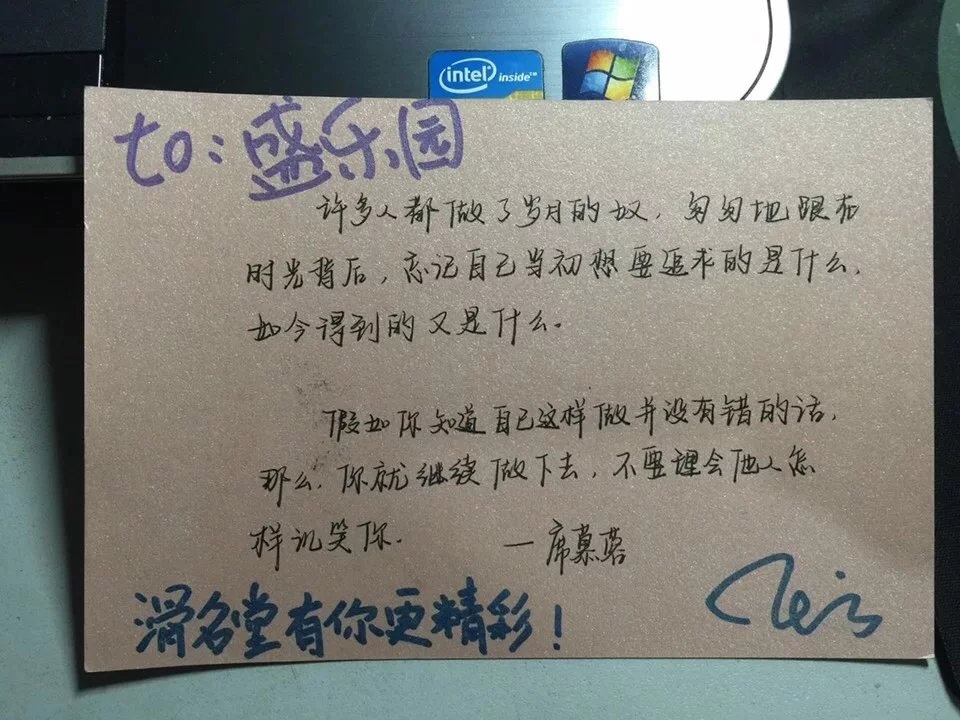 intel inside™
to：盛乐园
许多人都做了岁月的奴，匆匆地跟在
时光背后，忘记自己当初想要追求的是什么，
如今得到的又是什么。
假如你知道自己这样做并没有错的话，
那么，你就继续做下去，不要理会他人怎
样讥笑你.
—席慕蓉
滑名堂有你更精彩！